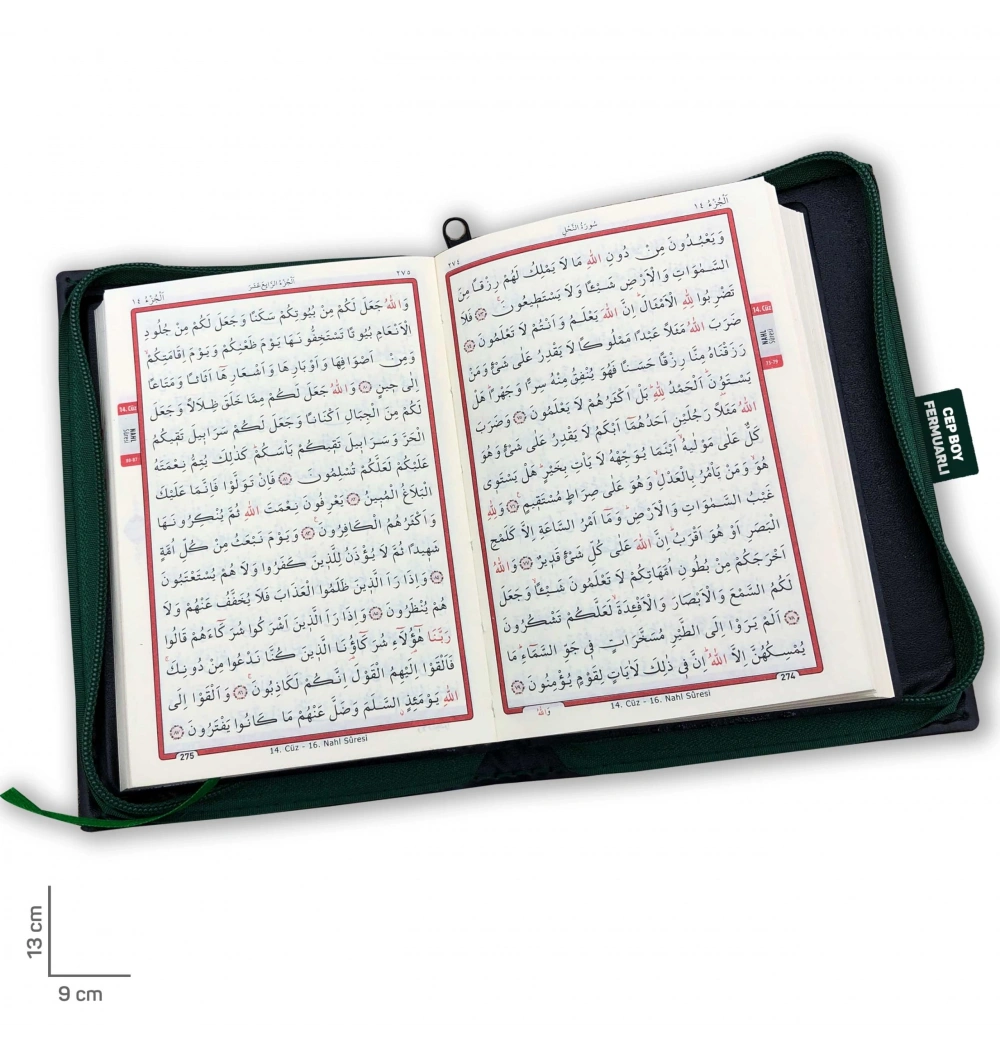 اَلْجُزْءُ ١٤
سُورَةُ النَّحْلِ
٢٧٤
وَيَعْبُدُونَ مِنْ دُونِ اللّٰهِ مَا لَا يَمْلِكُ لَهُمْ رِزْقًا مِنَ
السَّمٰوَاتِ وَالْاَرْضِ شَيْـًٔا وَلَا يَسْتَطِيعُونَۚ ﴿٧٣﴾ فَلَا
تَضْرِبُوا لِلّٰهِ الْاَمْثَالَۜ اِنَّ اللّٰهَ يَعْلَمُ وَاَنْتُمْ لَا تَعْلَمُونَ ﴿٧٤﴾
ضَرَبَ اللّٰهُ مَثَلًا عَبْدًا مَمْلُوكًا لَا يَقْدِرُ عَلٰى شَيْءٍ وَمَنْ
رَزَقْنَاهُ مِنَّا رِزْقًا حَسَنًا فَهُوَ يُنْفِقُ مِنْهُ سِرًّا وَجَهْرًاۜ هَلْ
يَسْتَوُ۫نَۜ اَلْحَمْدُ لِلّٰهِۜ بَلْ اَكْثَرُهُمْ لَا يَعْلَمُونَ ﴿٧٥﴾ وَضَرَبَ
اللّٰهُ مَثَلًا رَجُلَيْنِ اَحَدُهُمَٓا اَبْكَمُ لَا يَقْدِرُ عَلٰى شَيْءٍ وَهُوَ
كَلٌّ عَلٰى مَوْلٰيهُۙ اَيْنَمَا يُوَجِّهْهُ لَا يَأْتِ بِخَيْرٍۜ هَلْ يَسْتَوِي
هُوَۙ وَمَنْ يَأْمُرُ بِالْعَدْلِۙ وَهُوَ عَلٰى صِرَاطٍ مُسْتَقِيمٍ۟ ﴿٧٦﴾ وَلِلّٰهِ
غَيْبُ السَّمٰوَاتِ وَالْاَرْضِۜ وَمَٓا اَمْرُ السَّاعَةِ اِلَّا كَلَمْحِ
الْبَصَرِ اَوْ هُوَ اَقْرَبُۜ اِنَّ اللّٰهَ عَلٰى كُلِّ شَيْءٍ قَدِيرٌ ﴿٧٧﴾ وَاللّٰهُ
اَخْرَجَكُمْ مِنْ بُطُونِ اُمَّهَاتِكُمْ لَا تَعْلَمُونَ شَيْـًٔاۙ وَجَعَلَ
لَكُمُ السَّمْعَ وَالْاَبْصَارَ وَالْاَفْـِٔدَةَۙ لَعَلَّكُمْ تَشْكُرُونَ
﴿٧٨﴾ اَلَمْ يَرَوْا اِلَى الطَّيْرِ مُسَخَّرَاتٍ فِي جَوِّ السَّمَٓاءِۜ مَا
يُمْسِكُهُنَّ اِلَّا اللّٰهُۜ اِنَّ فِي ذٰلِكَ لَاٰيَاتٍ لِقَوْمٍ يُؤْمِنُونَ ﴿٧٩﴾
وَاللّٰهُ
274
14. Cüz - 16. Nahl Sûresi
14. Cüz
NAHL
Sûresi
73-79
٢٧٥
اَلْجُزْءُ الرَّابِعُ عَشَرَ
اَلْجُزْءُ ١٤
وَاللّٰهُ جَعَلَ لَكُمْ مِنْ بُيُوتِكُمْ سَكَنًا وَجَعَلَ لَكُمْ مِنْ جُلُودِ
الْاَنْعَامِ بُيُوتًا تَسْتَخِفُّونَهَا يَوْمَ ظَعْنِكُمْ وَيَوْمَ اِقَامَتِكُمْۙ
وَمِنْ اَصْوَافِهَا وَاَوْبَارِهَا وَاَشْعَارِهَٓا اَثَاثًا وَمَتَاعًا
اِلٰى حِينٍ ﴿٨٠﴾ وَاللّٰهُ جَعَلَ لَكُمْ مِمَّا خَلَقَ ظِلَالًا وَجَعَلَ
لَكُمْ مِنَ الْجِبَالِ اَكْنَانًا وَجَعَلَ لَكُمْ سَرَابِيلَ تَقِيكُمُ
الْحَرَّ وَسَرَابِيلَ تَقِيكُمْ بَأْسَكُمْۜ كَذٰلِكَ يُتِمُّ نِعْمَتَهُ
عَلَيْكُمْ لَعَلَّكُمْ تُسْلِمُونَ ﴿٨١﴾ فَاِنْ تَوَلَّوْا فَاِنَّمَا عَلَيْكَ
الْبَلَاغُ الْمُبِينُ ﴿٨٢﴾ يَعْرِفُونَ نِعْمَتَ اللّٰهِ ثُمَّ يُنْكِرُونَهَا
وَاَكْثَرُهُمُ الْكَافِرُونَ۟ ﴿٨٣﴾ وَيَوْمَ نَبْعَثُ مِنْ كُلِّ اُمَّةٍ
شَهِيدًا ثُمَّ لَا يُؤْذَنُ لِلَّذِينَ كَفَرُوا وَلَا هُمْ يُسْتَعْتَبُونَ
﴿٨٤﴾ وَاِذَا رَاَ الَّذِينَ ظَلَمُوا الْعَذَابَ فَلَا يُخَفَّفُ عَنْهُمْ وَلَا
هُمْ يُنْظَرُونَ ﴿٨٥﴾ وَاِذَا رَاَ الَّذِينَ اَشْرَكُوا شُرَكَٓاءَهُمْ قَالُوا
رَبَّنَا هٰٓؤُ۬لَٓاءِ شُرَكَٓاؤُ۬نَا الَّذِينَ كُنَّا نَدْعُوا مِنْ دُونِكَۚ
فَاَلْقَوْا اِلَيْهِمُ الْقَوْلَ اِنَّكُمْ لَكَاذِبُونَۚ ﴿٨٦﴾ وَاَلْقَوْا اِلَى
اللّٰهِ يَوْمَئِذٍ السَّلَمَ وَضَلَّ عَنْهُمْ مَا كَانُوا يَفْتَرُونَ ﴿٨٧﴾
275
14. Cüz - 16. Nahl Sûresi
14. Cüz
NAHL
Sûresi
80-87
CEP BOY
FERMUARLI
13 cm
9 cm